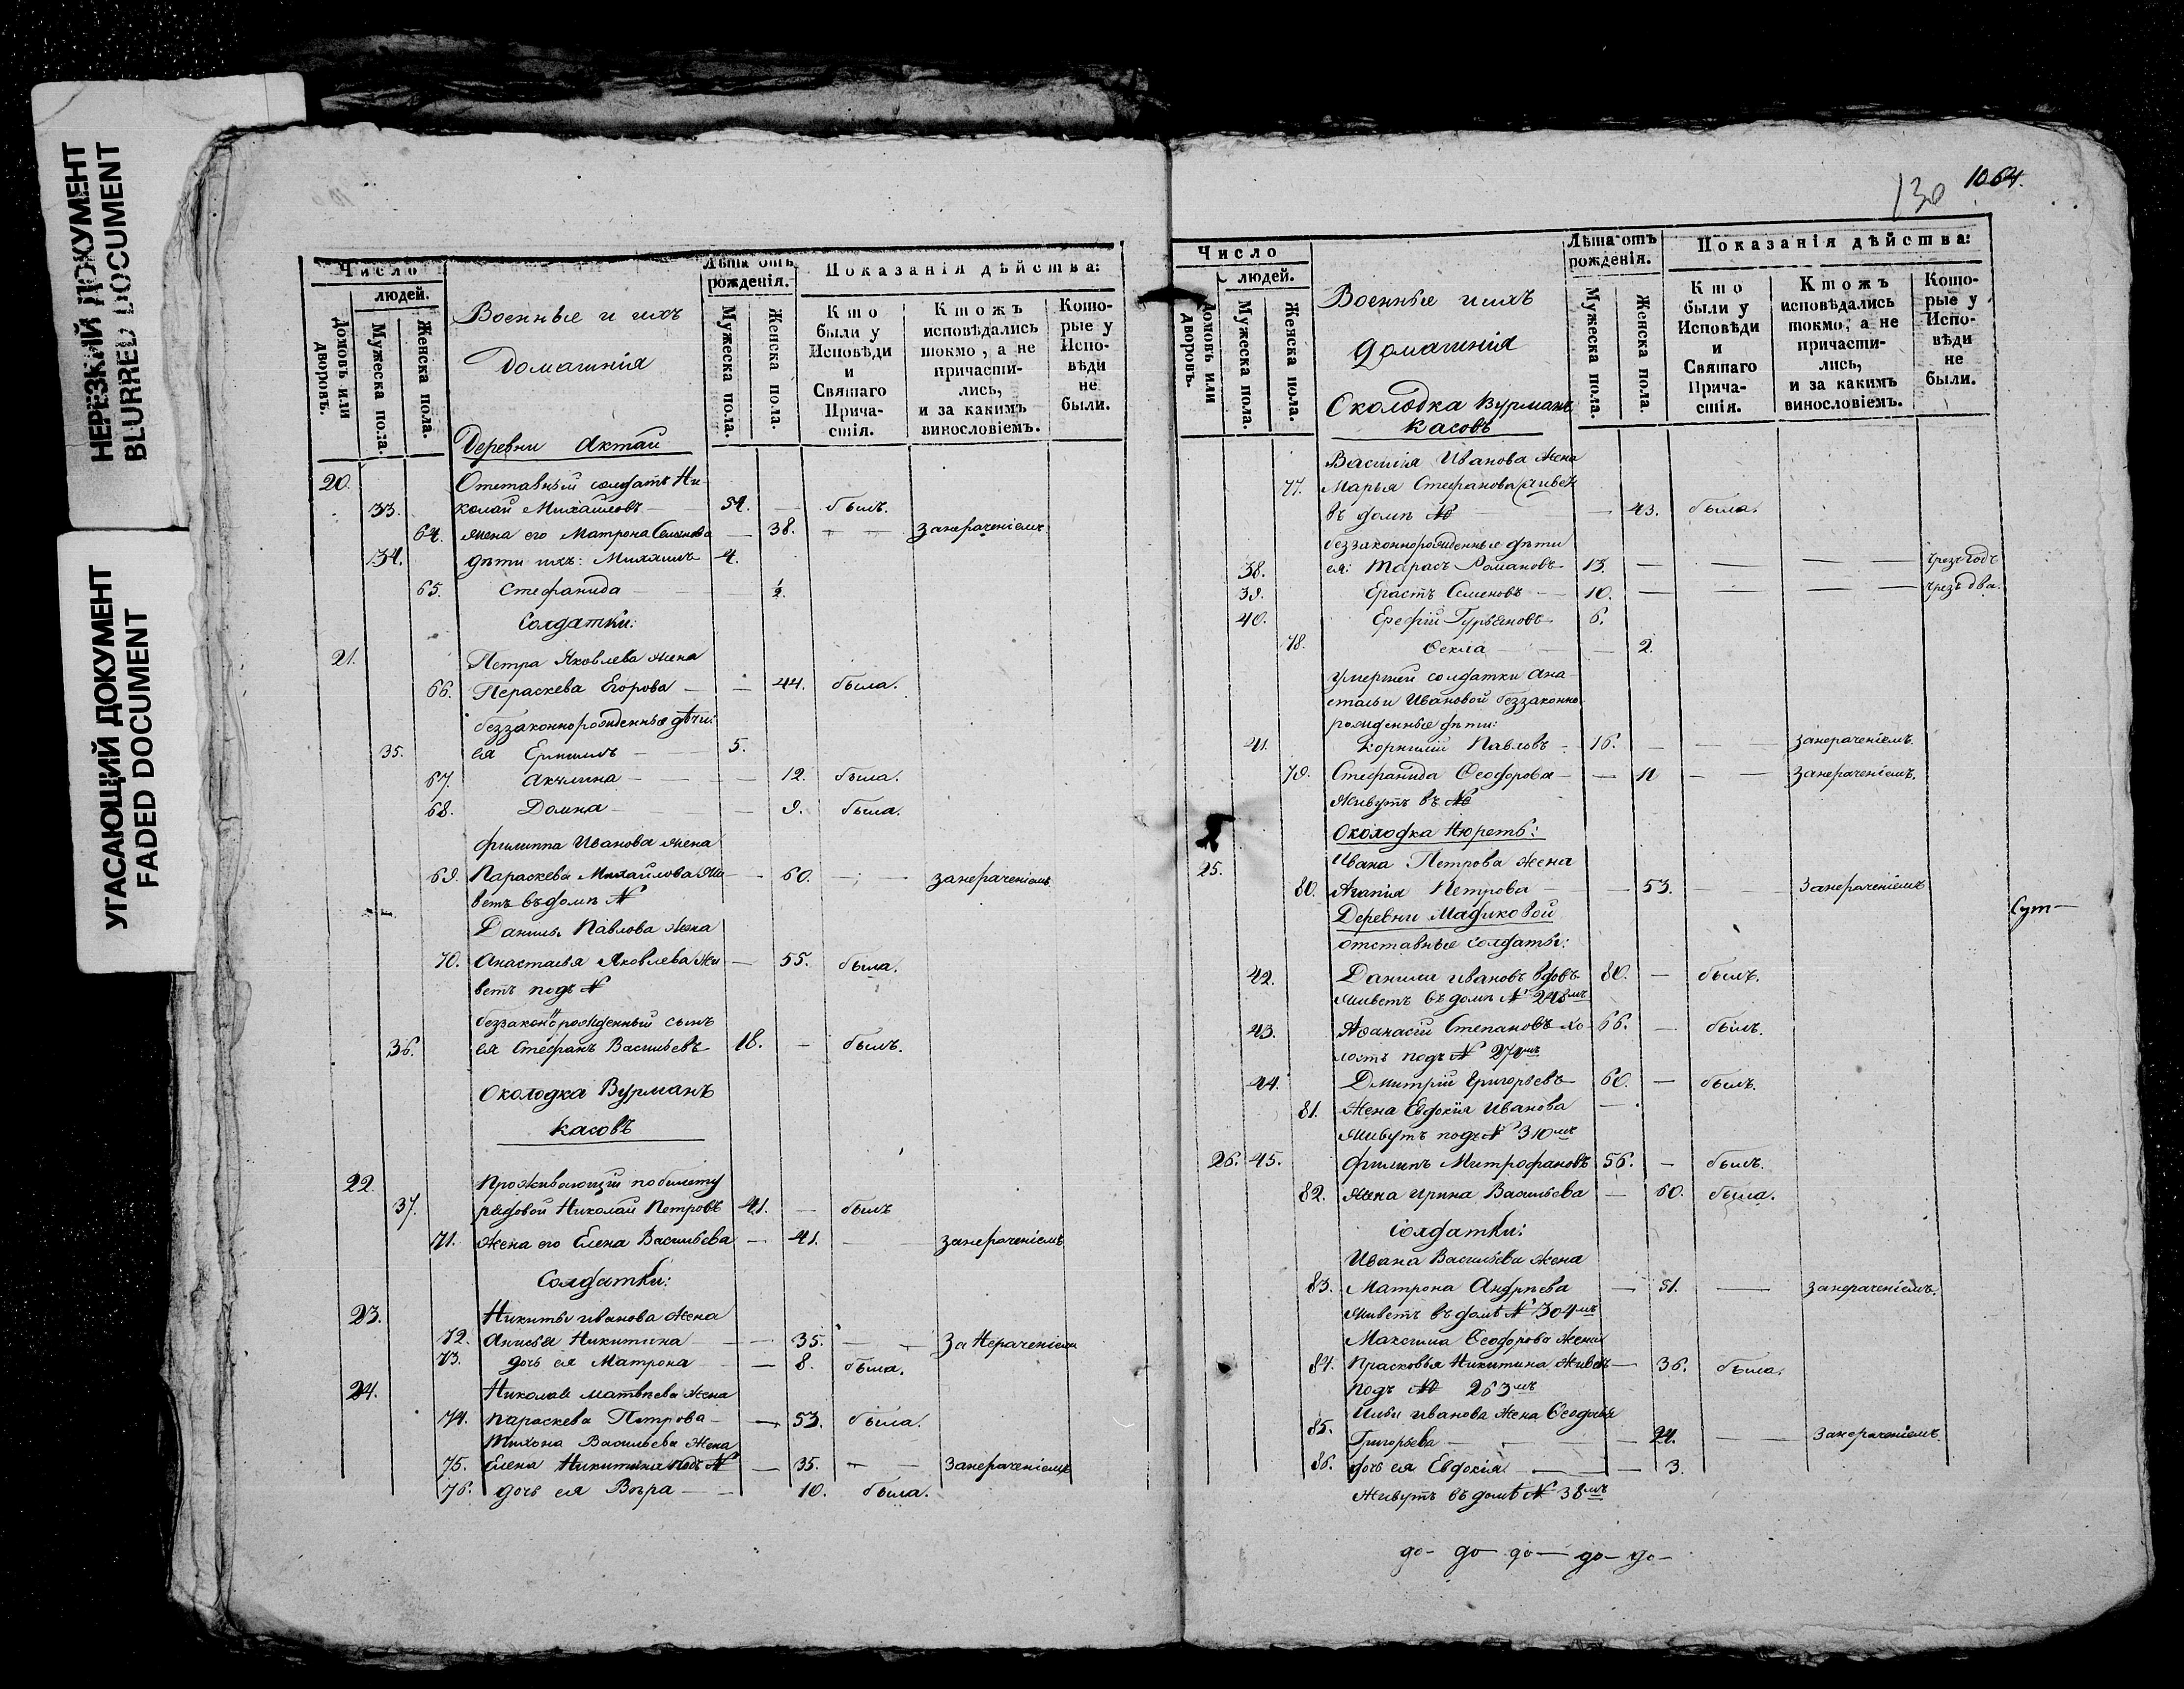 НЕРЕЗКИЙ ДОКУМЕНТ
BLURRED DOCUMENT
УГАСАЮЩИЙ ДОКУМЕНТ
FADED DOCUMENT
Число
людей.
Домовъ или дворовъ.
Мужеска пола.
Женска пола.
Военные и ихъ
домашнія
Деревни Актаи
Лѣта отъ рожденія.
Мужеска пола.
Женска пола.
Показанія дѣйства:
Кто были у Исповѣди и Святаго Причастія.
Ктожъ исповѣдались токмо, а не причастились, и за какимъ винословіемъ.
Которые у Исповѣди не были.
20. Отставный солдатъ Ни-
33. колай Михаиловъ — 54. — былъ.
64. жена его Матрона Семенова — 38. — — занераченіемъ
34. дѣти ихъ: Михаилъ 4.
65. Стефанида — — ½.
Солдатки:
21. Петра Яковлева жена
66. Параскева Егорова — — 44. была.
беззаконнорожденные дѣти
35. ея Ермилъ — 5.
67. Акилина — — 12. была.
68. Домна — — 9. была.
Филиппа Иванова жена
69. Параскева Михайлова жи- — 60. — — занераченіемъ
ветъ въ домѣ №
Данилы Павлова жена
70. Анастасья Яковлева жи — 55. была.
ветъ подъ №
беззаконнорожденный сынъ
36. ея Стефанъ Васильевъ 18. — былъ.
Околодка Вурманъ
касовъ
22. Проживающій по билету
37. рядовой Николай Петровъ 41. — былъ
71. жена его Елена Васильева — 41. — занераченіемъ
Солдатки:
23. Никиты Иванова жена
72. Анисья Никитина — — 35. — — за Нераченіемъ
73. дочь ея Матрона — 8. была.
24. Николая Матвѣева жена
74. Параскева Петрова — — 53. была.
Тихона Васильева жена
75. Елена Никитина подъ № — 35. — — занераченіемъ
76. дочь ея Вѣра — — 10. была.
130 1064.
Число
людей.
Домовъ или дворовъ.
Мужеска пола.
Женска пола.
Военные и ихъ
домашнія
Околодка Вурманъ
касовъ
Лѣта отъ рожденія.
Мужеска пола.
Женска пола.
Показанія дѣйства:
Кто были у Исповѣди и Святаго Причастія.
Ктожъ исповѣдались токмо, а не причастились, и за какимъ винословіемъ.
Которые у Исповѣди не были.
Василія Иванова жена
77. Марья Стефанова живе
въ домѣ № — 43. была.
беззаконнорожденные дѣти
38. ея: Тарасъ Романовъ 13. — — — — чрезъ годъ
39. Ерастъ Семеновъ — 10. — — — — чрезъ два.
40. Гурьяновъ 6.
78. Ѳекла — — 2.
умершей солдатки Ана-
стасьи Ивановой беззаконно-
рожденные дѣти:
41. Корнилій Павловъ — 16. — — — занераченіемъ.
79. Стефанида Ѳеодорова — — 11 — — занераченіемъ.
Живутъ въ №
Околодка Нюреть:
25. Ивана Петрова жена
80. Агапія Петрова — — 53. — — занераченіемъ
Деревни Мадиковой
отставные солдаты:
42. Данила Ивановъ вдовъ 80. — былъ.
живетъ въ домѣ № 248мъ
43. Аѳанасій Степановъ хо- 66. — былъ.
лостъ подъ № 272мъ
44. Дмитрій Григорьевъ 60. — былъ.
81. жена Евдокія Иванова —
живутъ подъ № 310мъ
26. 45. Филипъ Митрофановъ 56. — былъ.
82. жена Ирина Васильева — 60. была.
Солдатки:
Ивана Васильева жена
83. Матрона Андрѣева — 51. — занераченіемъ.
живетъ въ домѣ № 304мъ
Максима Ѳеодорова жена
84. Прасковья Никитина живе — 36. была.
подъ № 263мъ
Ильи Иванова жена Ѳеодосья
85. Григорьева — — — 24. — занераченіемъ.
86. дочь ея Евдокія — — 3.
Живутъ въ домѣ № 38мъ
до- до- до- до- до-